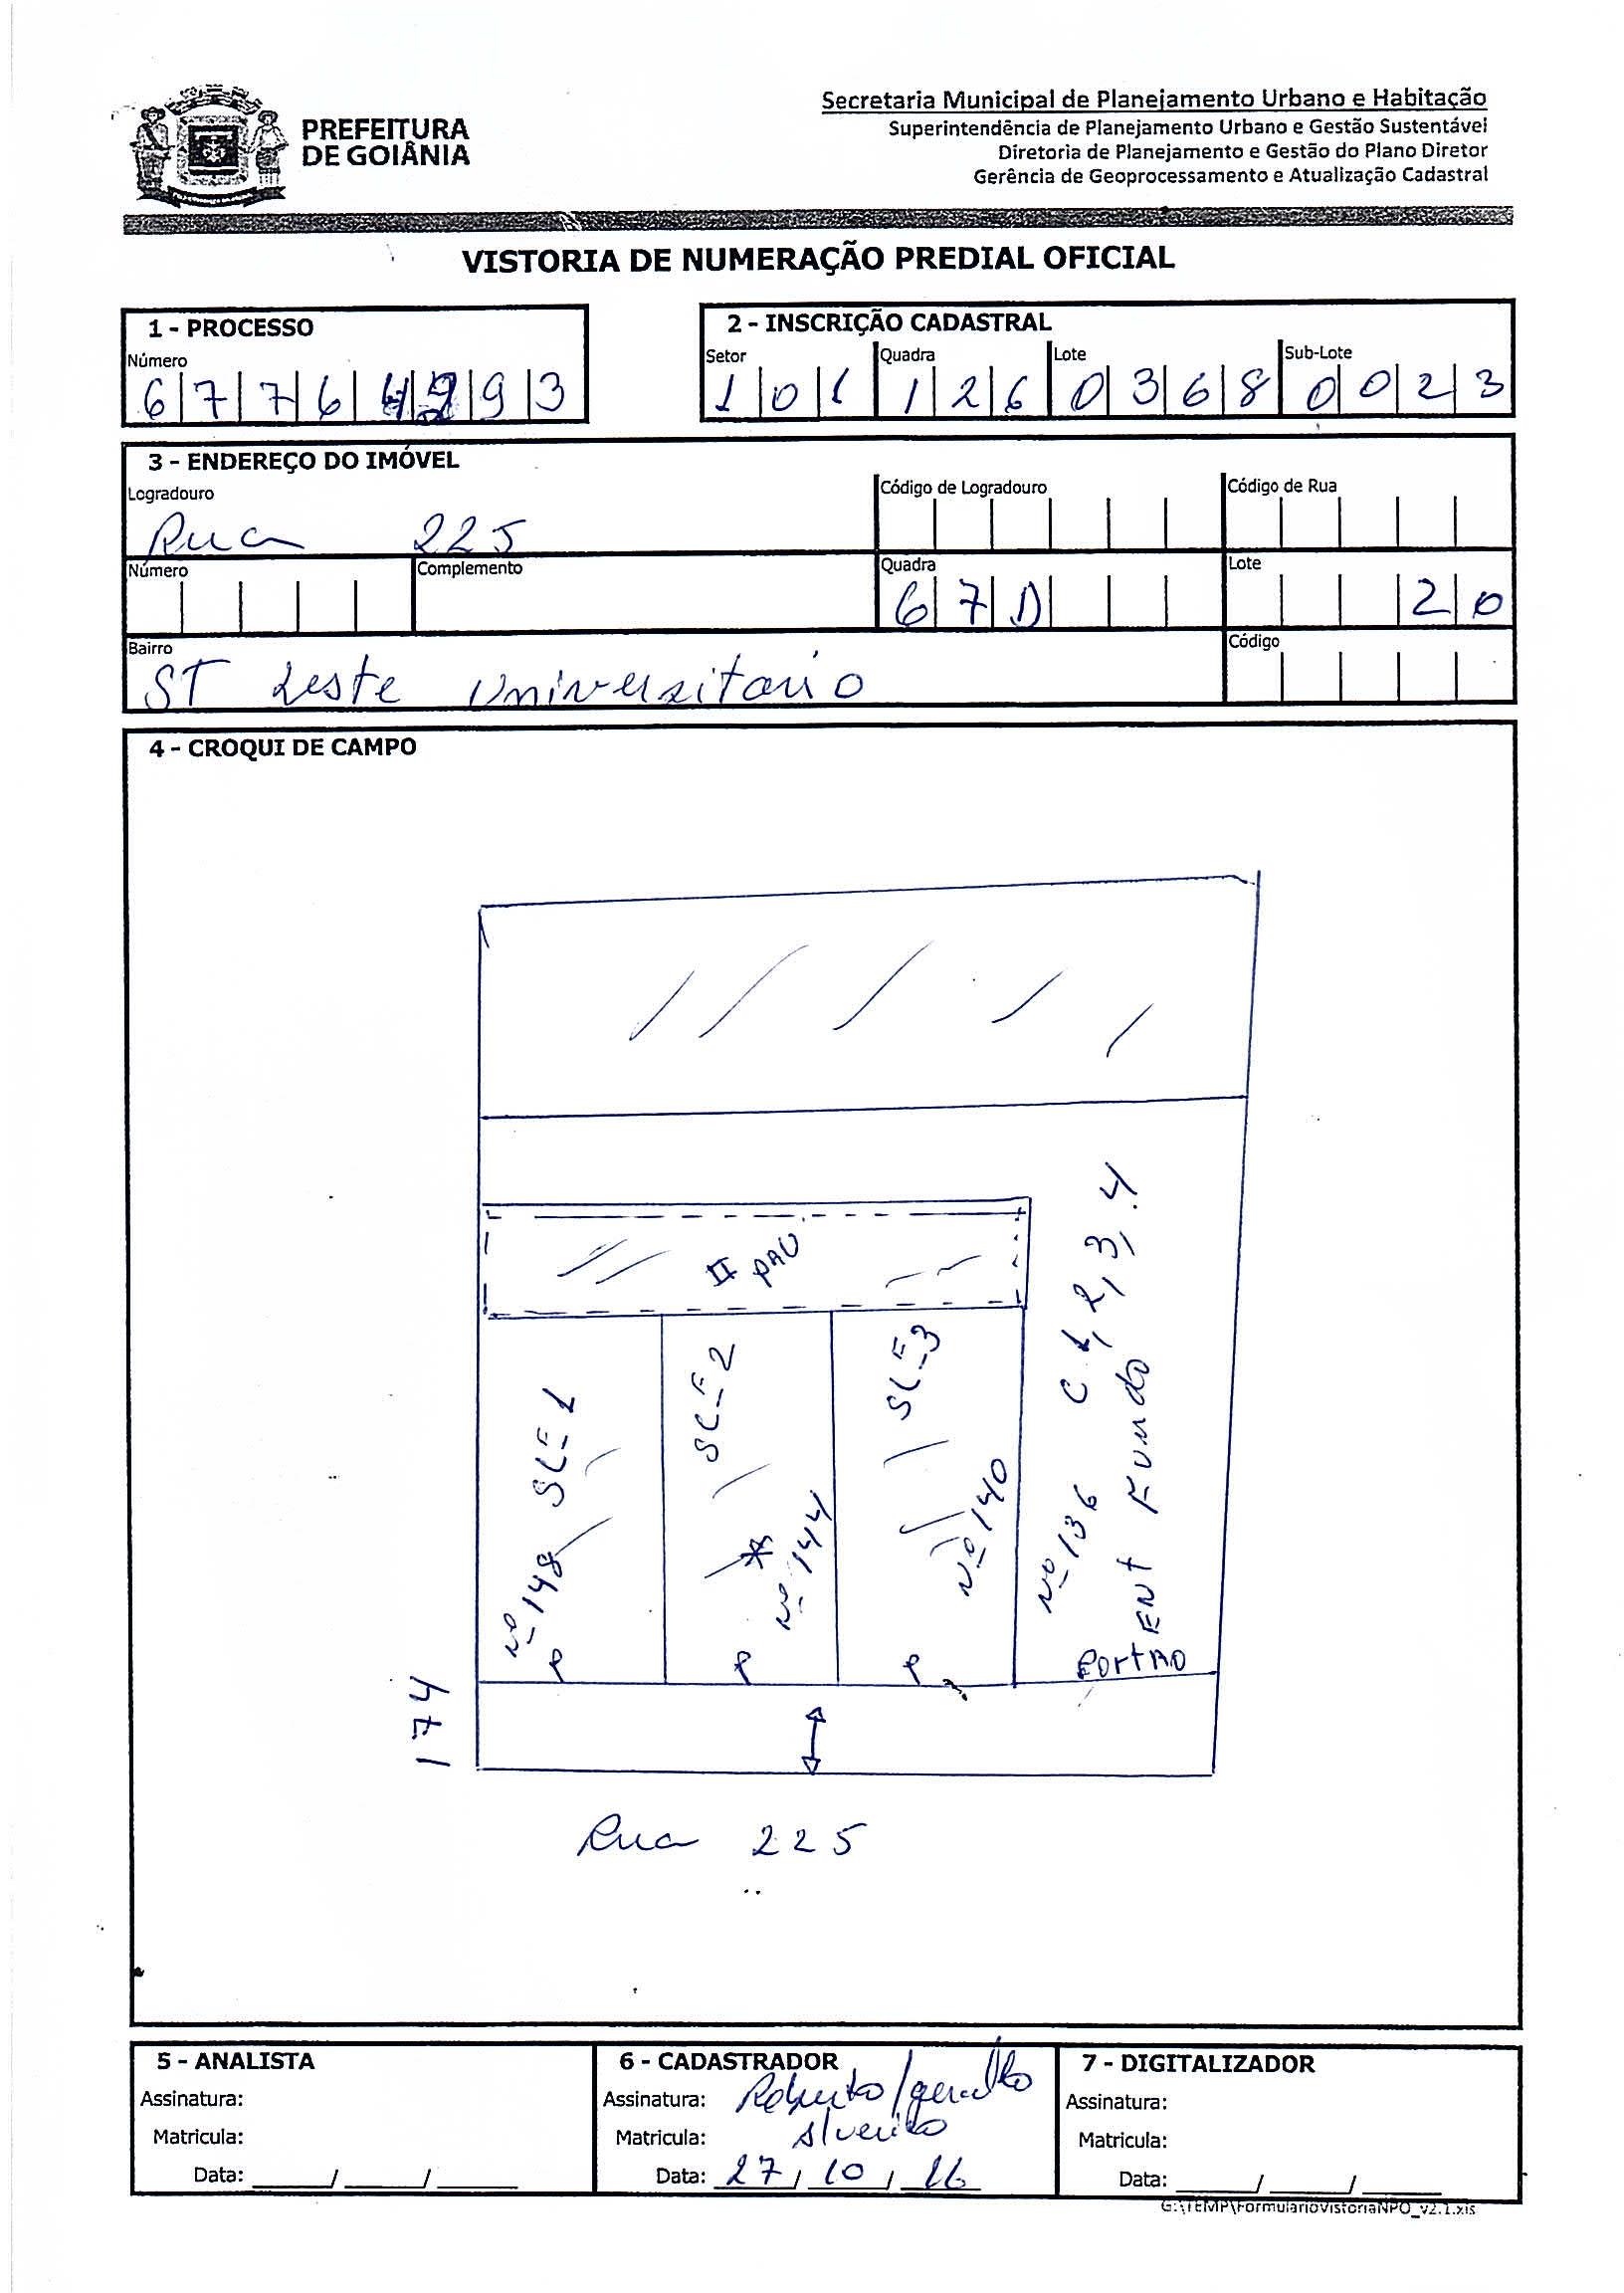 PREFEITURA
DE GOIÂNIA
Secretaria Municipal de Planejamento Urbano e Habitação
Superintendência de Planejamento Urbano e Gestão Sustentável
Diretoria de Planejamento e Gestão do Plano Diretor
Gerência de Geoprocessamento e Atualização Cadastral
VISTORIA DE NUMERAÇÃO PREDIAL OFICIAL
1 - PROCESSO
Número
6 7 7 6 9 3
2 - INSCRIÇÃO CADASTRAL
Setor Quadra Lote Sub-Lote
1 0 1 1 2 6 0 3 6 8 0 0 2 3
3 - ENDEREÇO DO IMÓVEL
Logradouro Código de Logradouro Código de Rua
Rua 225
Número Complemento Quadra Lote
6 7 D 2 0
Bairro Código
ST Leste Universitario
4 - CROQUI DE CAMPO
II PAV
Nº 148 SL=1
SL=2
Nº 144
SL=3
Nº 140
Nº 136 C 1, 2, 3, 4
ENT Fundo
PORTAO
P P P
174
Rua 225
5 - ANALISTA
Assinatura:
Matricula:
Data: ____/____/____
6 - CADASTRADOR
Assinatura: Roberto/geraldo
Matricula:
Data: 27/10/16
7 - DIGITALIZADOR
Assinatura:
Matricula:
Data: ____/____/____
G:\TEMP\FormularioVistoriaNPO_v2.1.xls